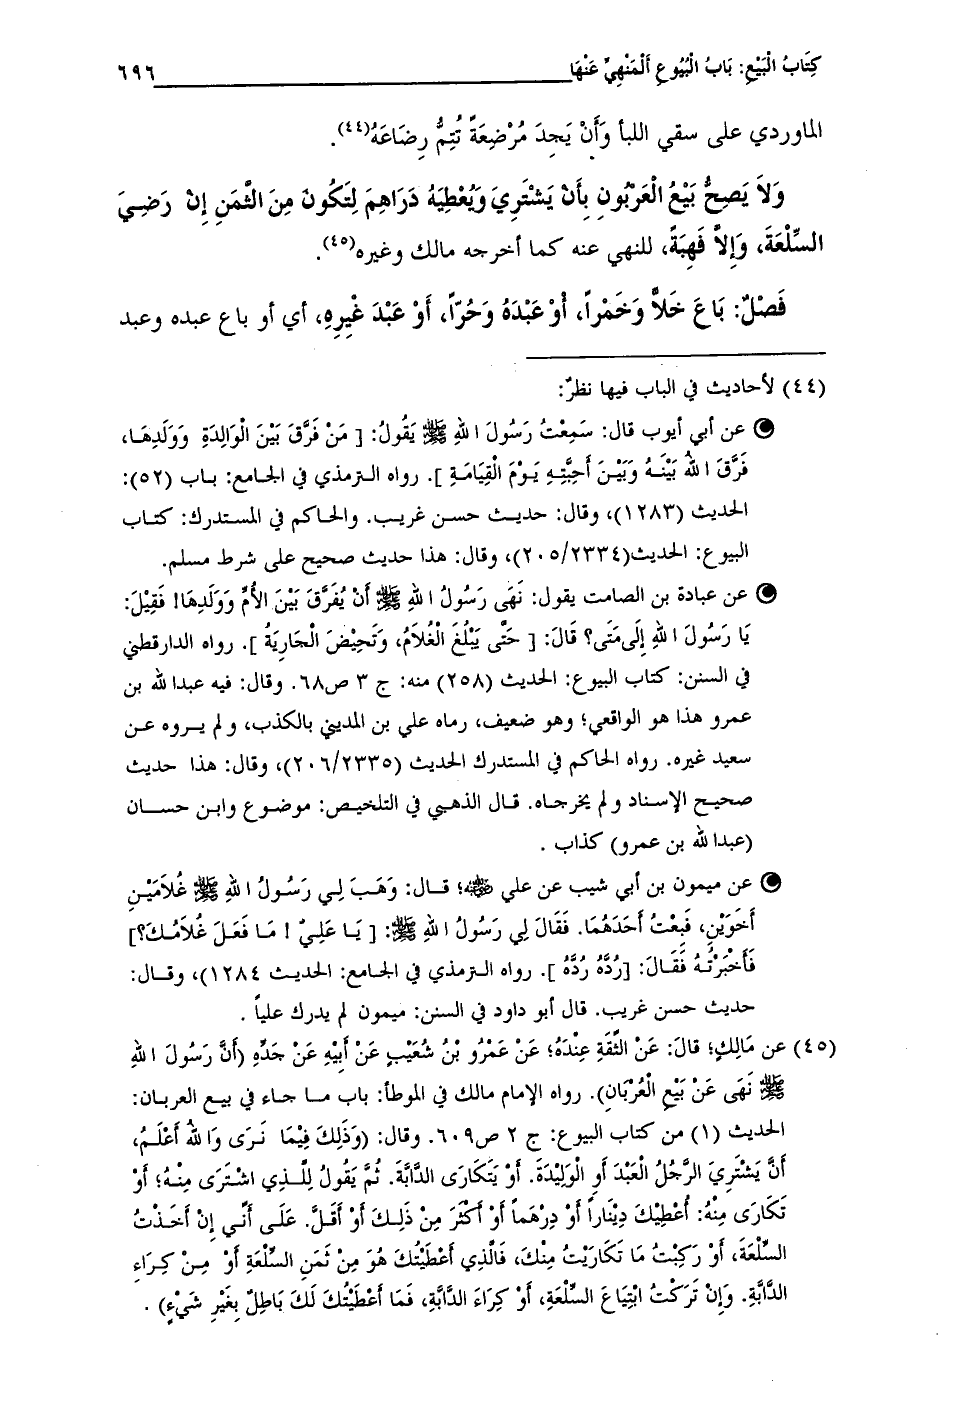 كِتَابُ الْبَيْعِ: بَابُ الْبُيُوعِ الْمَنْهِيِّ عَنْهَا ٦٩٦
الماوردي على سقي اللبأ وَأَنْ يَجِدَ مُرْضِعَةً تُتِمُّ رِضَاعَهُ(٤٤).
وَلاَ يَصِحُّ بَيْعُ الْعَرْبُونِ بِأَنْ يَشْتَرِيَ وَيُعْطِيَهُ دَرَاهِمَ لِتَكُونَ مِنَ الثَّمَنِ إِنْ رَضِيَ
السِّلْعَةَ، وَإِلاَّ فَهِبَةً، للنهي عنه كما أخرجه مالك وغيره(٤٥).
فَصْلٌ: بَاعَ خَلاًّ وَخَمْراً، أَوْ عَبْدَهُ وَحُرّاً، أَوْ عَبْدَ غَيْرِهِ، أي أو باع عبده وعبد
(٤٤) لأحاديث في الباب فيها نظرٌ:
عن أبي أيوب قال: سَمِعْتُ رَسُولَ اللهِ ﷺ يَقُولُ: [ مَنْ فَرَّقَ بَيْنَ الْوَالِدَةِ وَوَلَدِهَا،
فَرَّقَ اللهُ بَيْنَهُ وَبَيْنَ أَحِبَّتِهِ يَوْمَ الْقِيَامَةِ ]. رواه الترمذي في الجامع: باب (٥٢):
الحديث (١٢٨٣)، وقال: حديث حسن غريب. والحاكم في المستدرك: كتاب
البيوع: الحديث(٢٠٥/٢٣٣٤)، وقال: هذا حديث صحيح على شرط مسلم.
عن عبادة بن الصامت يقول: نَهَى رَسُولُ اللهِ ﷺ أَنْ يُفَرَّقَ بَيْنَ الأُمِّ وَوَلَدِهَا! فَقِيْلَ:
يَا رَسُولَ اللهِ إِلَى مَتَى؟ قَالَ: [ حَتَّى يَبْلُغَ الْغُلاَمُ، وَتَحِيْضَ الْجَارِيَةُ ]. رواه الدارقطني
في السنن: كتاب البيوع: الحديث (٢٥٨) منه: ج ٣ ص٦٨. وقال: فيه عبدالله بن
عمرو هذا هو الواقعي؛ وهو ضعيف، رماه علي بن المديني بالكذب، ولم يروه عن
سعيد غيره. رواه الحاكم في المستدرك الحديث (٢٠٦/٢٣٣٥)، وقال: هذا حديث
صحيح الإسناد ولم يخرجاه. قال الذهبي في التلخيص: موضوع وابن حسان
(عبدالله بن عمرو) كذاب .
عن ميمون بن أبي شيب عن علي ﵁؛ قال: وَهَبَ لِي رَسُولُ اللهِ ﷺ غُلاَمَيْنِ
أَخَوَيْنِ، فَبِعْتُ أَحَدَهُمَا. فَقَالَ لِي رَسُولُ اللهِ ﷺ: [ يَا عَلِيُّ ! مَا فَعَلَ غُلاَمُكَ؟]
فَأَخْبَرْتُهُ فَقَالَ: [رُدَّهُ رُدَّهُ ]. رواه الترمذي في الجامع: الحديث ١٢٨٤)، وقال:
حديث حسن غريب. قال أبو داود في السنن: ميمون لم يدرك علياً .
(٤٥) عن مَالِكٍ؛ قالَ: عَنْ الثِّقَةِ عِنْدَهُ؛ عَنْ عَمْرُو بْنُ شُعَيْبٍ عَنْ أَبِيْهِ عَنْ جَدِّهِ (أَنَّ رَسُولَ اللهِ
ﷺ نَهَى عَنْ بَيْعِ الْعُرْبَانِ). رواه الإمام مالك في الموطأ: باب ما جاء في بيع العربان:
الحديث (١) من كتاب البيوع: ج ٢ ص٦٠٩. وقال: (وَذَلِكَ فِيْمَا نَرَى وَاللهُ أَعْلَمُ،
أَنْ يَشْتَرِيَ الرَّجُلُ العَبْدَ أَوِ الْوَلِيْدَةَ. أَوْ يَتَكَارَى الدَّابَّةَ. ثُمَّ يَقُولُ لِلَّذِي اشْتَرَى مِنْهُ؛ أَوْ
تَكَارَى مِنْهُ: أُعْطِيْكَ دِيْنَاراً أَوْ دِرْهَماً أَوْ أَكْثَرَ مِنْ ذَلِكَ أَوْ أَقَلَّ. عَلَى أَنِّي إِنْ أَخَذْتُ
السِّلْعَةَ، أَوْ رَكِبْتُ مَا تَكَارَيْتُ مِنْكَ، فَالَّذِي أَعْطَيْتُكَ هُوَ مِنْ ثَمَنِ السِّلْعَةِ أَوْ مِنْ كِرَاءِ
الدَّابَّةِ. وَإِنْ تَرَكْتُ ابْتِيَاعَ السِّلْعَةِ، أَوْ كِرَاءَ الدَّابَّةِ، فَمَا أَعْطَيْتُكَ لَكَ بَاطِلٌ بِغَيْرِ شَيْءٍ) .